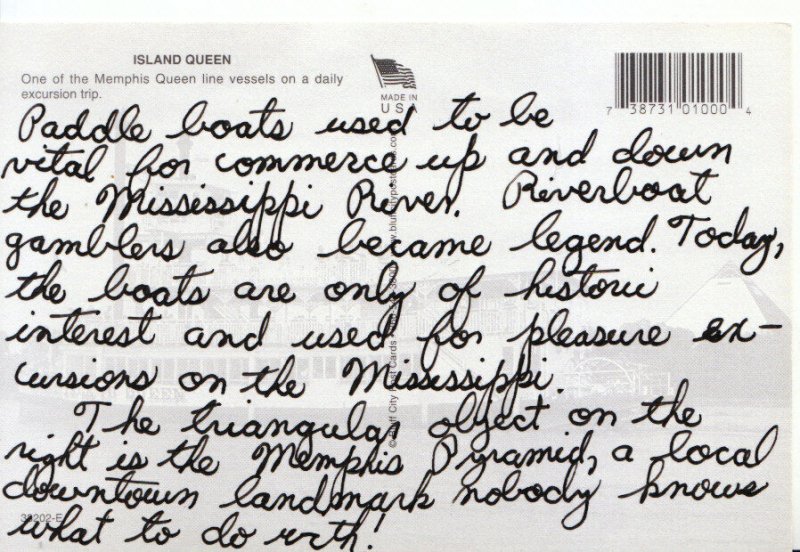 ISLAND QUEEN
One of the Memphis Queen line vessels on a daily
excursion trip.
MADE IN
USA
7 38731 01000 4
Paddle boats used to be
vital for commerce up and down
the Mississippi River. Riverboat
gamblers also became legend. Today,
the boats are only of historic
interest and used for pleasure ex-
cursions on the Mississippi.
The triangular object on the
right is the Memphis Pyramid, a local
downtown landmark nobody knows
what to do with!